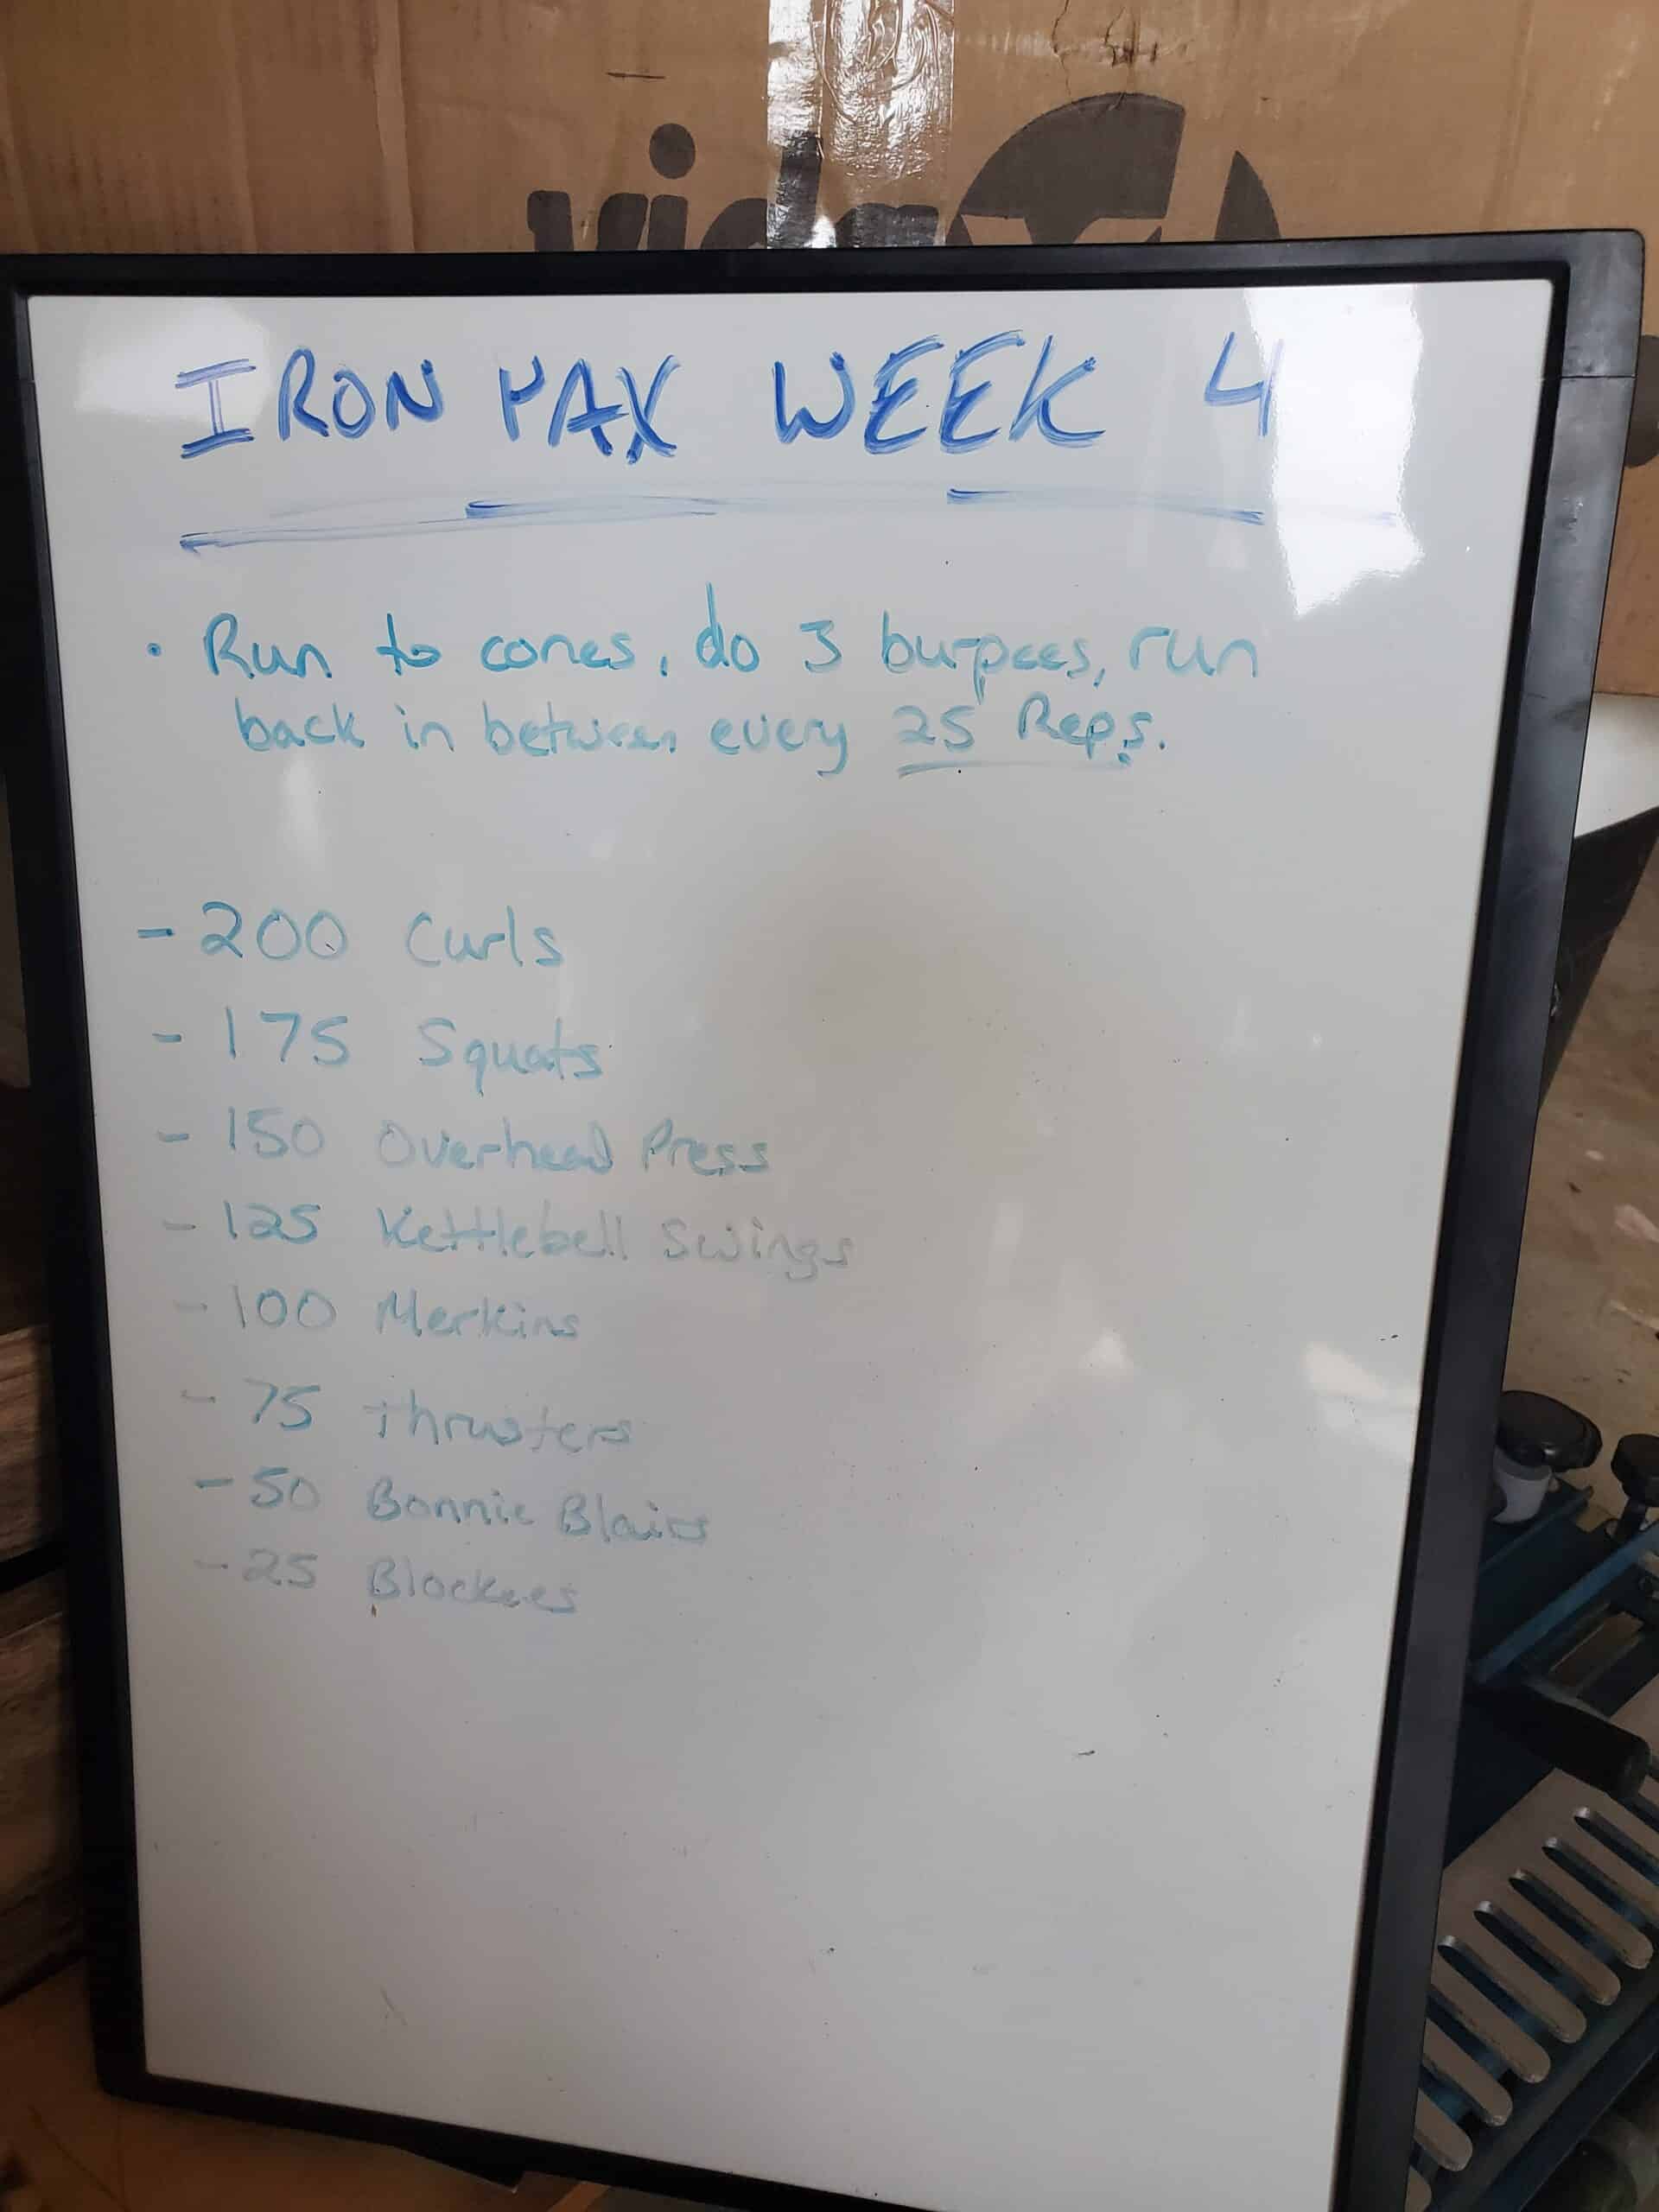 vida
IRON PAX WEEK 4
• Run to cones, do 3 burpees, run
back in between every 25 Reps.
- 200 Curls
- 175 Squats
- 150 Overhead Press
- 125 Kettlebell Swings
- 100 Merkins
- 75 Thrusters
- 50 Bonnie Blairs
- 25 Blockees